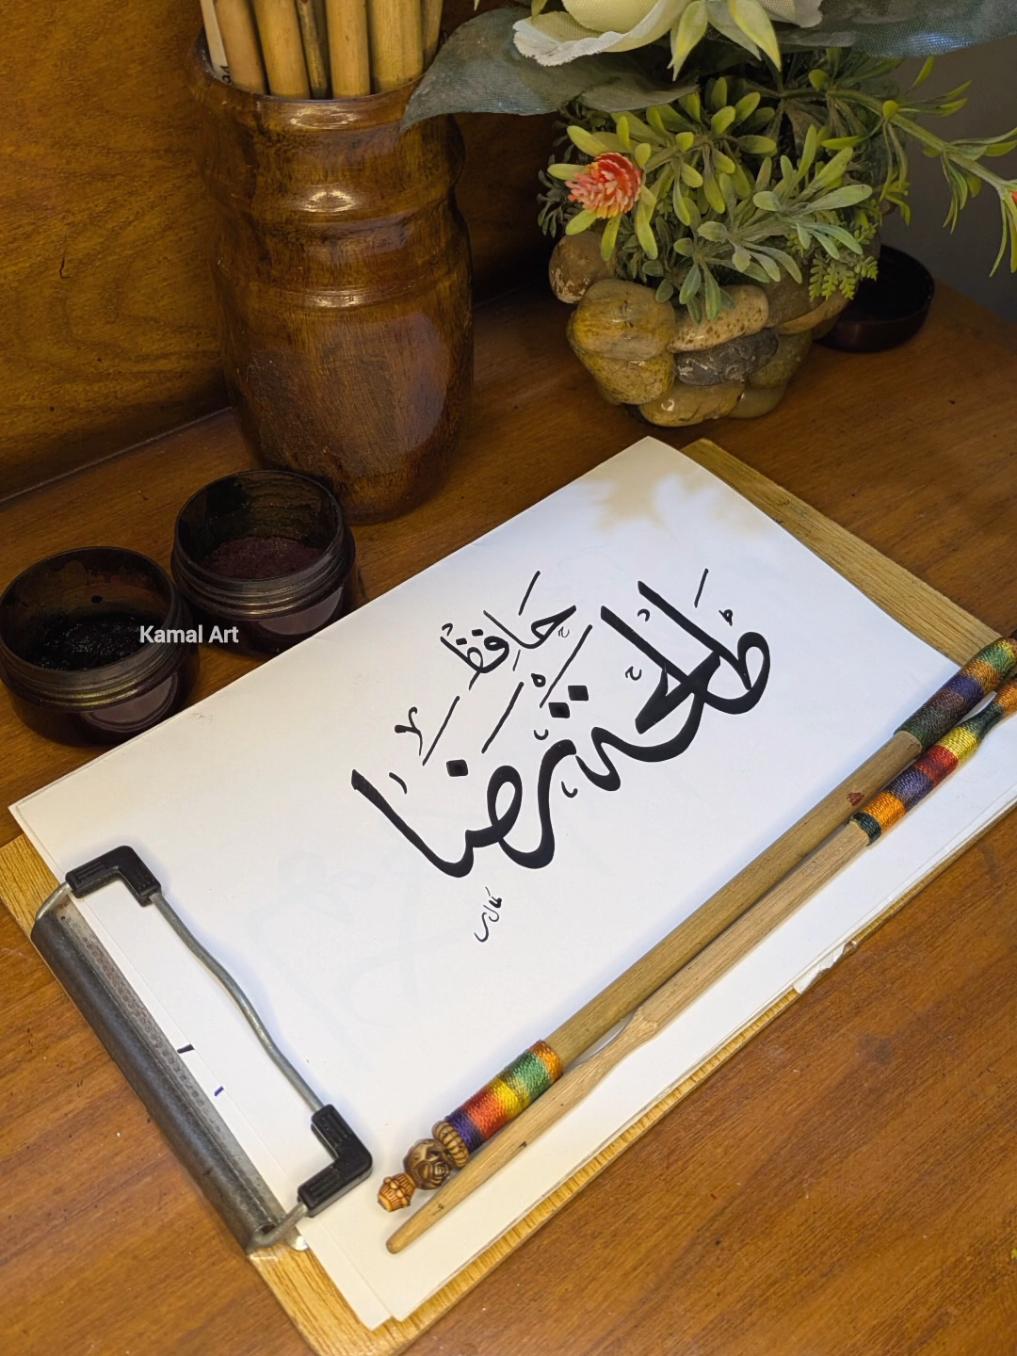 حافظ
طلحة رضا
كمال
Kamal Art